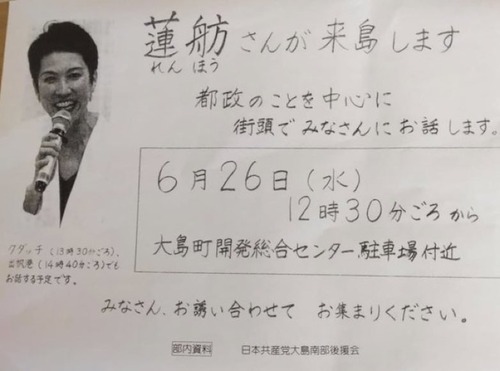 蓮舫さんが来島します
れん ほう
都政のことを中心に
街頭でみなさんにお話します。
6月26日(水)
12時30分ごろから
大島町開発総合センター駐車場付近
クダッチ(13時30分ごろ)、
(14時40分ごろ)でも
お話する予定です。
みなさん、お誘い合わせて お集まりください。
部内資料 日本共産党大島南部後援会